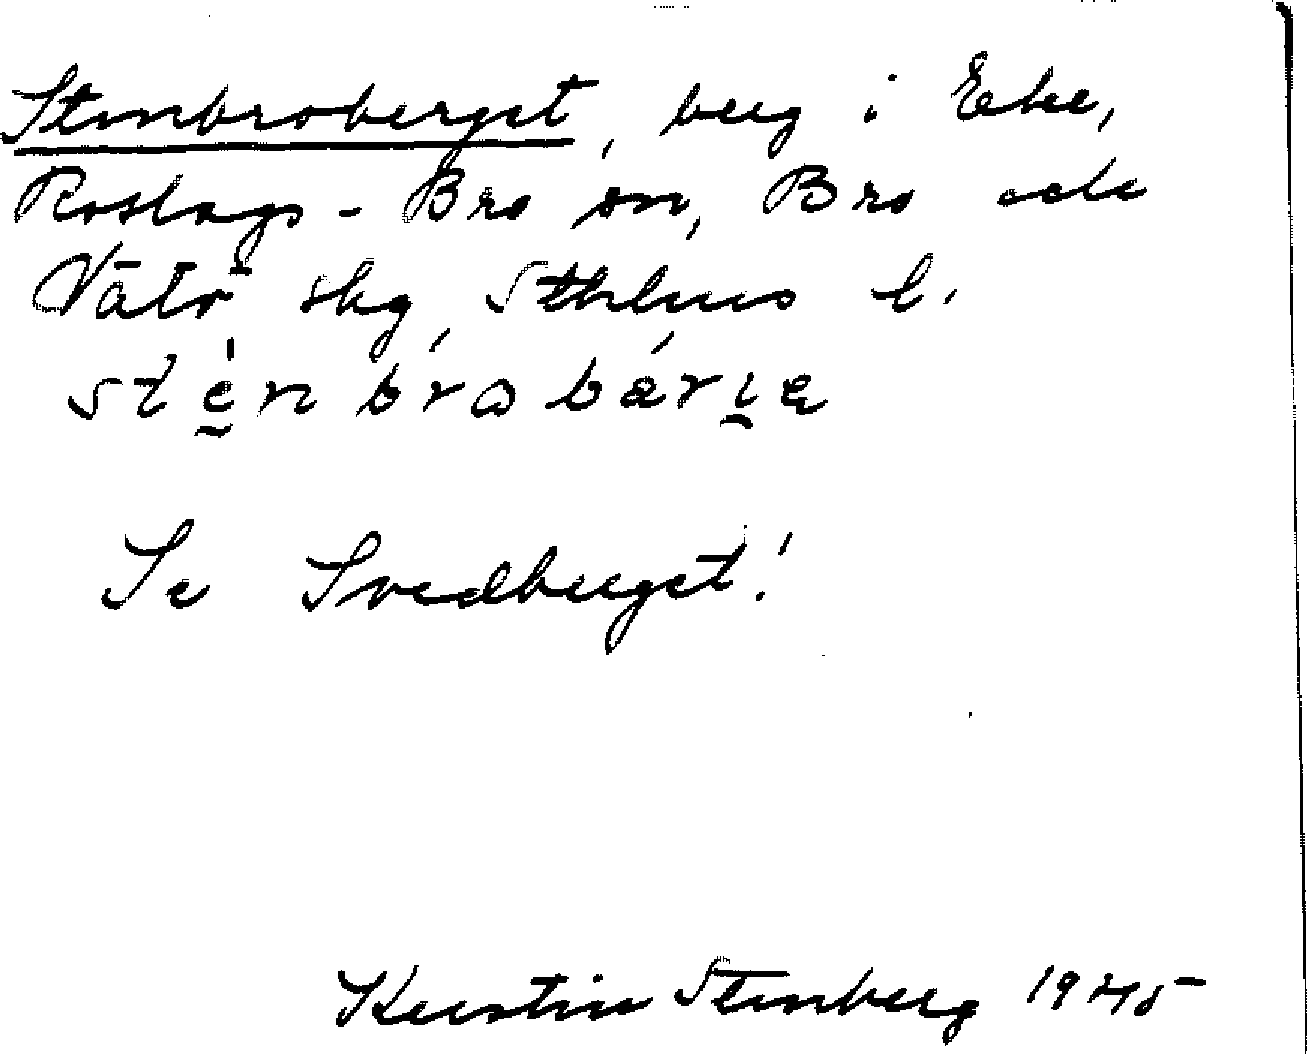 Stenbroberget, berg i Eke,
Roslags-Bro sn, Bro och
Vätö skg, Sthlms l.
sténbrobárɩɐ
Se Svedberget!
Kerstin Stenberg 1945